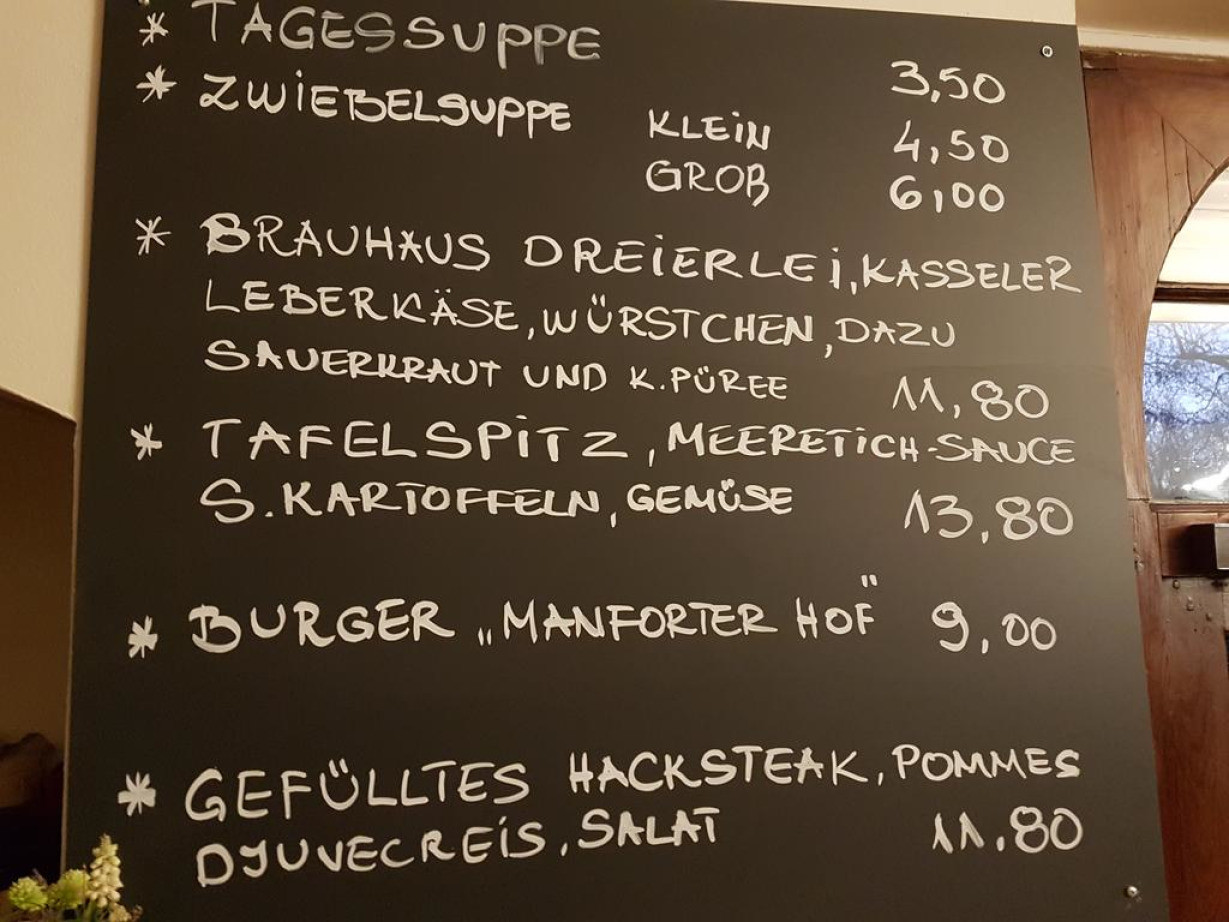 * TAGESSUPPE 3,50
* ZWIEBELSUPPE KLEIN 4,50
GROß 6,00
* BRAUHAUS DREIERLEI, KASSELER
LEBERKÄSE, WÜRSTCHEN, DAZU
SAUERKRAUT UND K. PÜREE 11,80
* TAFELSPITZ, MEERETICH-SAUCE
S. KARTOFFELN, GEMÜSE 13,80
* BURGER „MANFORTER HOF" 9,00
* GEFÜLLTES HACKSTEAK, POMMES
DJUVECREIS, SALAT 11.80